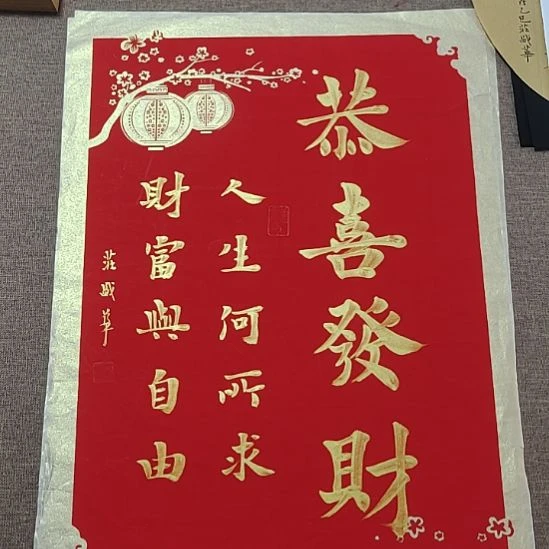 恭喜發財
人生何所求
財富與自由